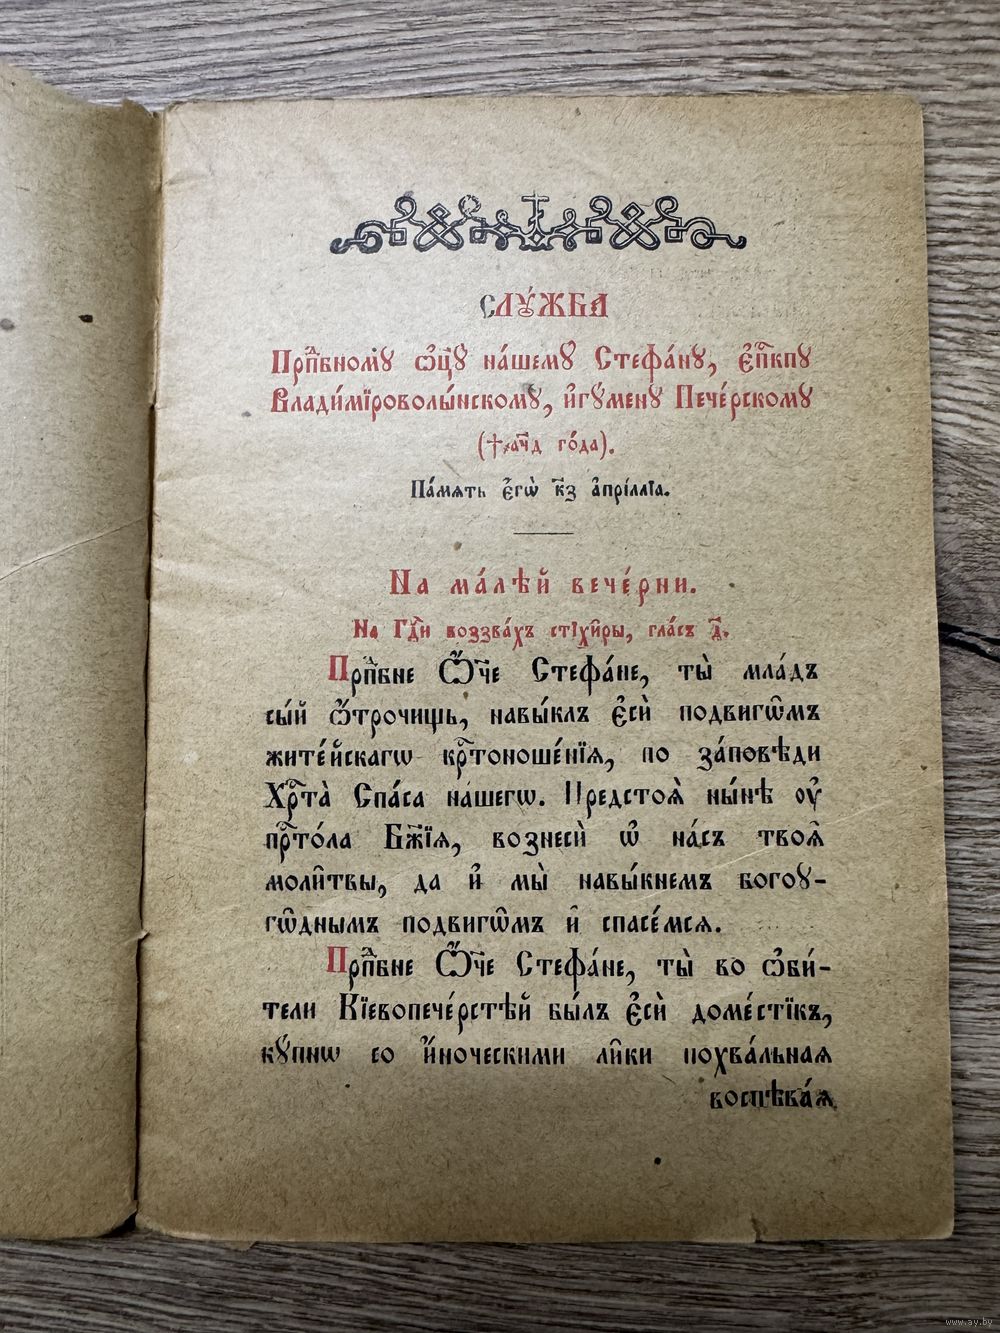 СЛꙋ́ЖБА
Прпⷣбномꙋ ѻ҆ц҃ꙋ̀ на́шемꙋ Стефа́нꙋ, є҆пⷭ҇кпꙋ
Влади́мїроволы́нскомꙋ, и҆гꙋ́менꙋ Пече́рскомꙋ
(†҂ачⷣ го́да).
Па́мѧть є҆гѡ̀ к҃з а҆прі́ллїа.
На ма́лѣй вече́рни.
На Гдⷭ҇и воззва́хъ стїхи̑ры, гла́съ д҃.
Прпⷣбне Ѻ҆́ч҃е Стефа́не, ты̀ мла́дъ
сы́й ѻ҆трочищь, навы́клъ є҆сѝ подвигѡ́мъ
жите́йскагѡ крⷭ҇тоноше́нїѧ, по за́повѣди
Хрⷭ҇та̀ Спа́са на́шегѡ. Предстоѧ̀ ны́нѣ ᲂу҆
прⷭ҇то́ла Бж҃їѧ, вознесѝ ѡ҆ на́съ твоѧ̑
моли̑твы, да и҆ мы̀ навы́кнемъ богоꙋ-
гѡ́днымъ подвигѡ́мъ и҆ спасе́мсѧ.
Прпⷣбне Ѻ҆́ч҃е Стефа́не, ты̀ во ѻ҆би́-
тели Кїевопече́рстѣй бы́лъ є҆сѝ доме́стїкъ,
кꙋ́пнѡ со и҆́ноческими ли̑ки похва́льнаѧ
воспѣва́ѧ
www.ay.by